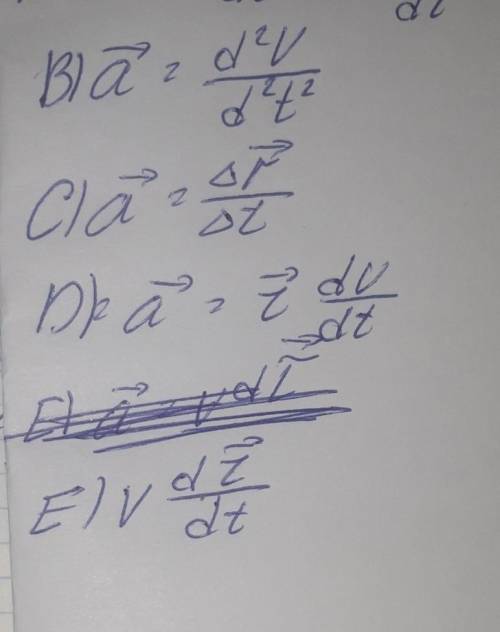 dt
B) a⃗ = d²V / d²t²
C) a⃗ = Δr⃗ / Δt
D) a⃗ = τ⃗ dV / dt
E) V dτ⃗ / dt